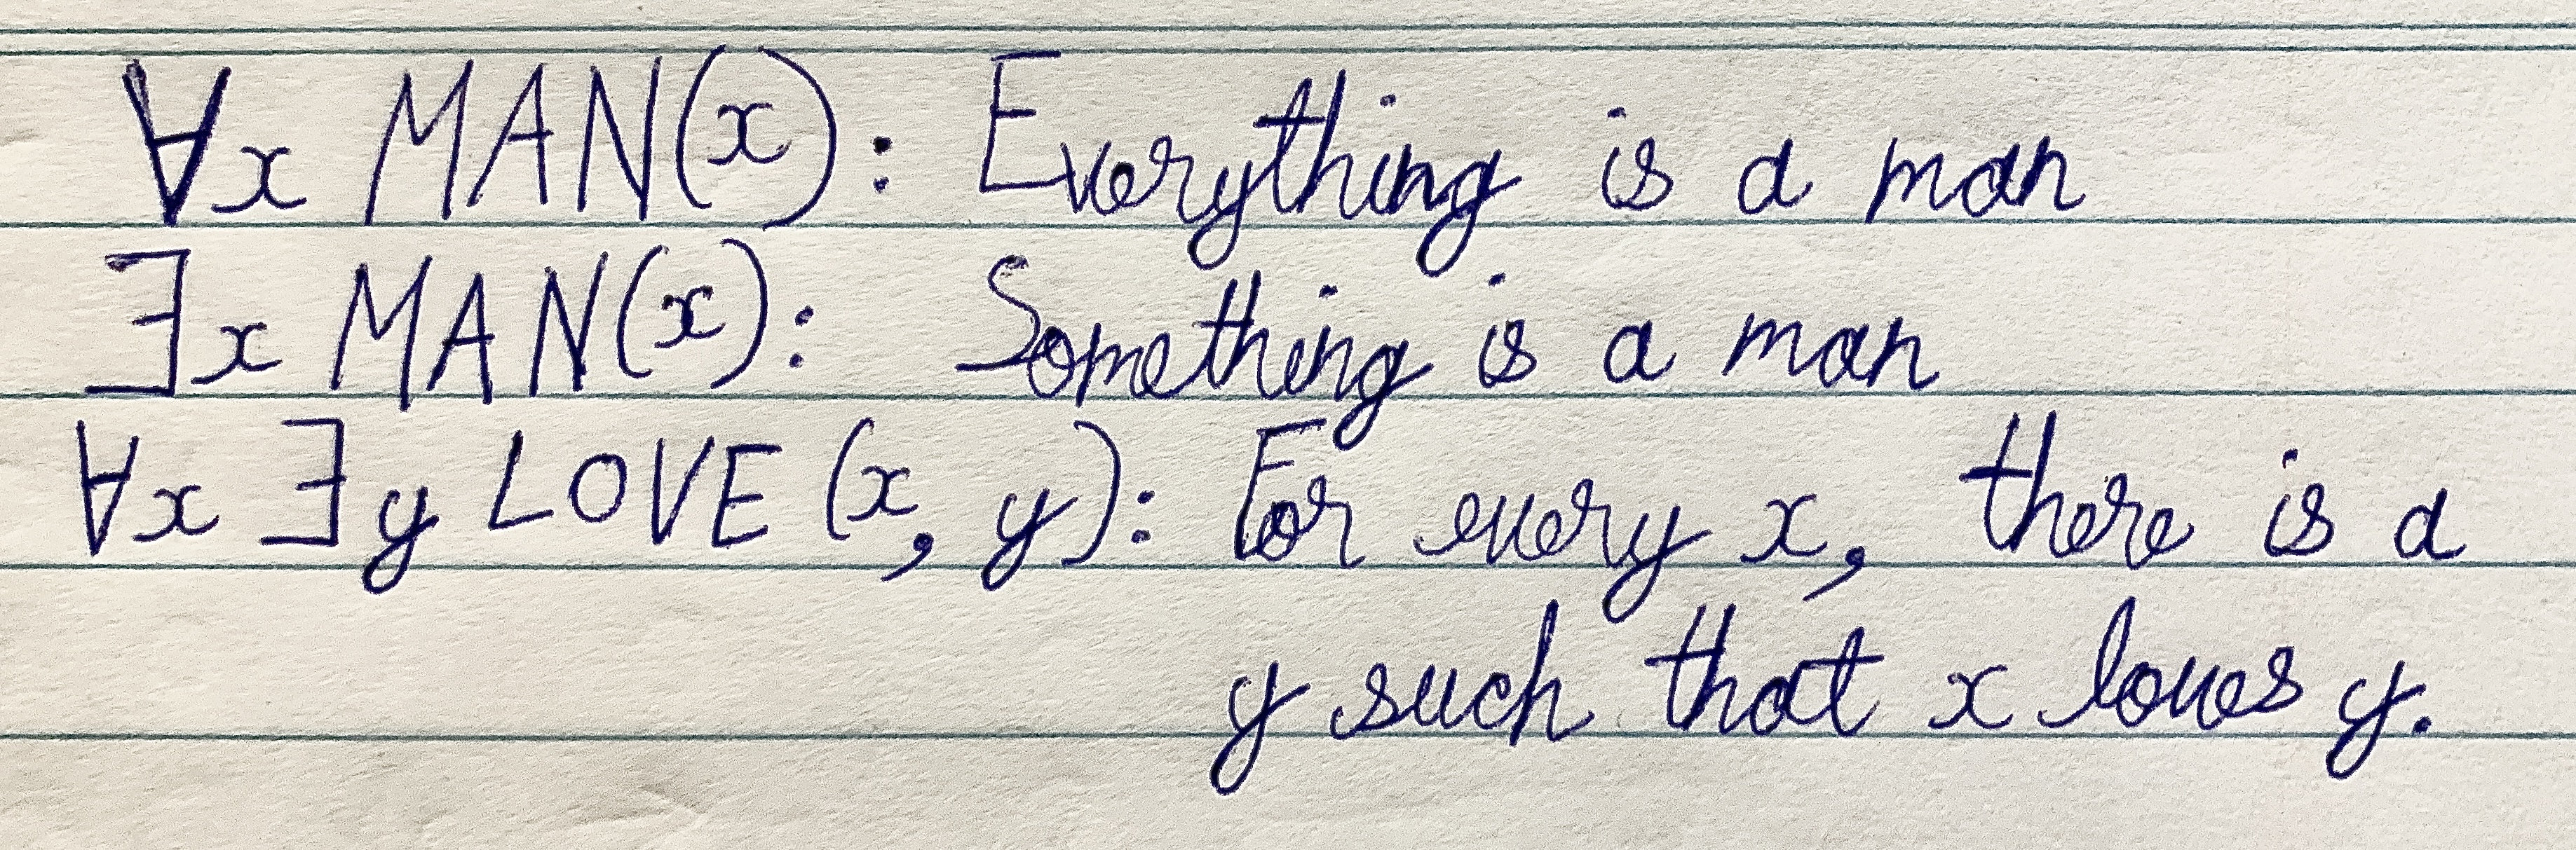 ∀x MAN(x): Everything is a man
∃x MAN(x): Something is a man
∀x ∃y LOVE (x, y): For every x, there is a
y such that x loves y.